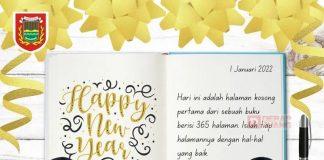 Happy
New
Year
1 Januari 2022
Hari ini adalah halaman kosong
pertama dari sebuah buku
berisi 365 halaman. Isilah tiap
halamannya dengan hal-hal
yang baik